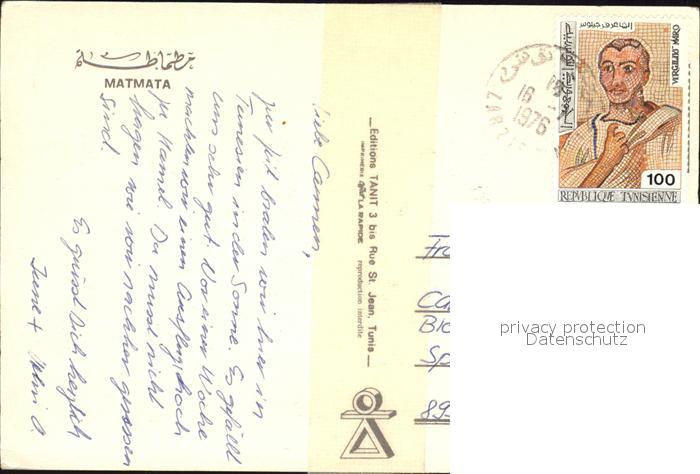 مطماطة
MATMATA
Liebe Carmen,
Zur Zeit braten wir hier in
Tunesien in der Sonne. Es gefällt
uns sehr gut. Vor einer Woche
machten wir einen Ausflug, hoch
zu Kamel. Du musst nicht
fragen wie wir nachher gewesen
sind.
Es grüsst Dich herzlich
Irene +
Editions TANIT 3 bis Rue St. Jean, Tunis
IMPRIMERIE LA RAPIDE
reproduction interdite
VERGILIUS MARO
100
REPUBLIQUE TUNISIENNE
16
1976
ZARZIS
Fra
Ca
Bi
Sp
895
privacy protection
Datenschutz